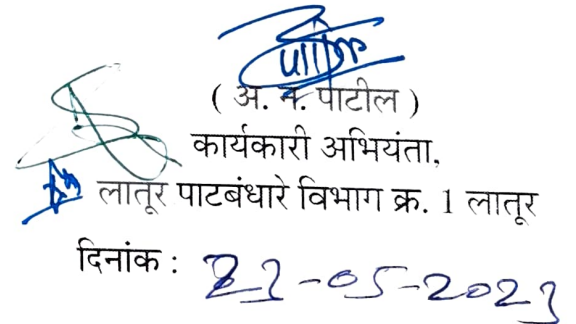 ( अ. न. पाटील )
कार्यकारी अभियंता,
लातूर पाटबंधारे विभाग क्र. 1 लातूर
दिनांक : 23-05-2023